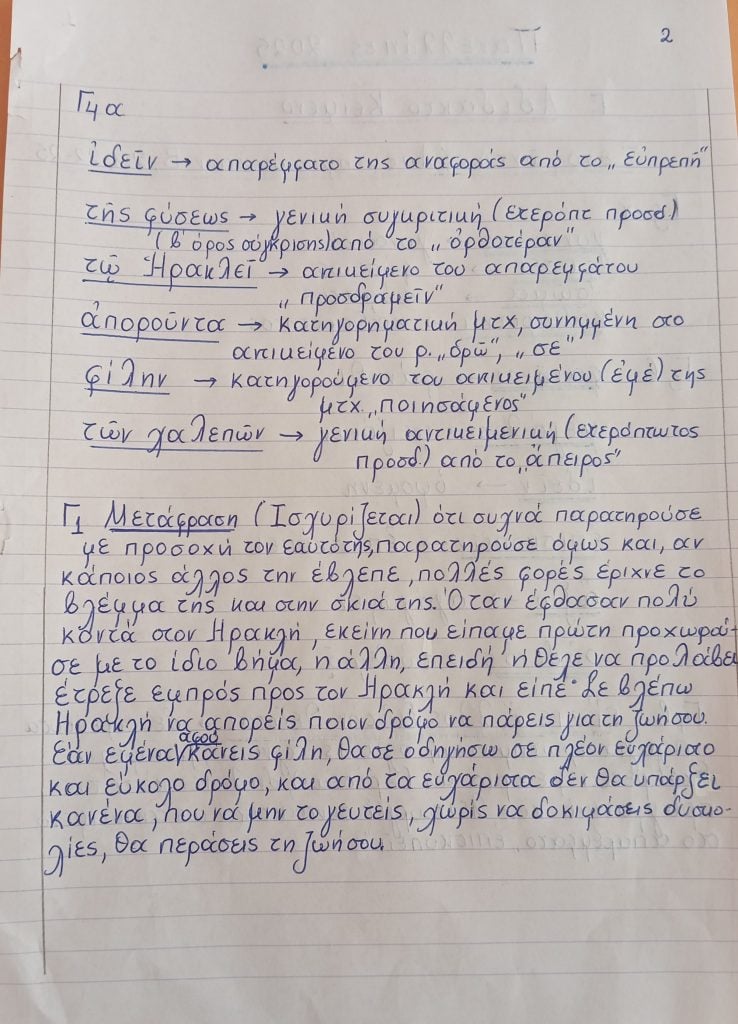 2
Γ4α
ἰδεῖν → απαρέμφατο της αναφοράς από το „εὐπρεπῆ"
τῆς φύσεως → γενική συγκριτική (ετερόπτ προσδ.)
(β' όρος σύγκρισης) από το „ὀρθοτέραν"
τῷ Ἡρακλεῖ → αντικείμενο του απαρεμφάτου
„προσδραμεῖν"
ἀποροῦντα → κατηγορηματική μτχ, συνημμένη στο
αντικείμενο του ρ. „ὁρῶ", „σε"
φίλην → κατηγορούμενο του αντικειμένου (ἐμέ) της
μτχ. „ποιησάμενος"
τῶν χαλεπῶν → γενική αντικειμενική (ετερόπτωτος
προσδ.) από το „ἄπειρος"
Γ1 Μετάφραση (Ισχυρίζεται) ότι συχνά παρατηρούσε
με προσοχή τον εαυτό της, παρατηρούσε όμως και, αν
κάποιος άλλος την έβλεπε, πολλές φορές έριχνε το
βλέμμα της και στην σκιά της. Όταν έφθασαν πολύ
κοντά στον Ηρακλή, εκείνη που είπαμε πρώτη προχωρού-
σε με το ίδιο βήμα, η άλλη, επειδή ήθελε να προλάβει
έτρεξε εμπρός προς τον Ηρακλή και είπε· Σε βλέπω
Ηρακλή να απορείς ποιον δρόμο να πάρεις για τη ζωή σου.
Εάν εμένα αφού κάνεις φίλη, θα σε οδηγήσω σε πλέον ευχάριστο
και εύκολο δρόμο, και από τα ευχάριστα δεν θα υπάρξει
κανένα, που να μην το γευτείς, χωρίς να δοκιμάσεις δυσκο-
λίες, θα περάσεις τη ζωή σου.